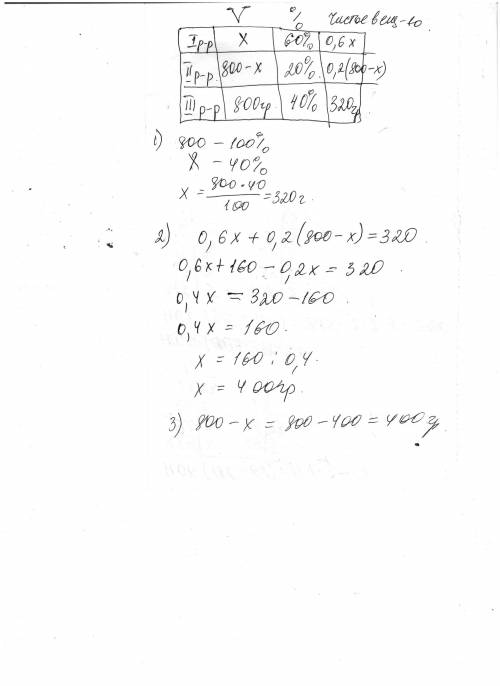 V % Чистое вещ-во
I р-р X 60% 0,6x
II р-р 800-x 20% 0,2(800-x)
III р-р 800гр 40% 320гр
1) 800 - 100%
X - 40%
x = 800·40/100 = 320г.
2) 0,6x + 0,2(800-x) = 320.
0,6x + 160 - 0,2x = 320
0,4x = 320 - 160.
0,4x = 160.
x = 160 : 0,4.
x = 400гр.
3) 800 - x = 800 - 400 = 400гр.